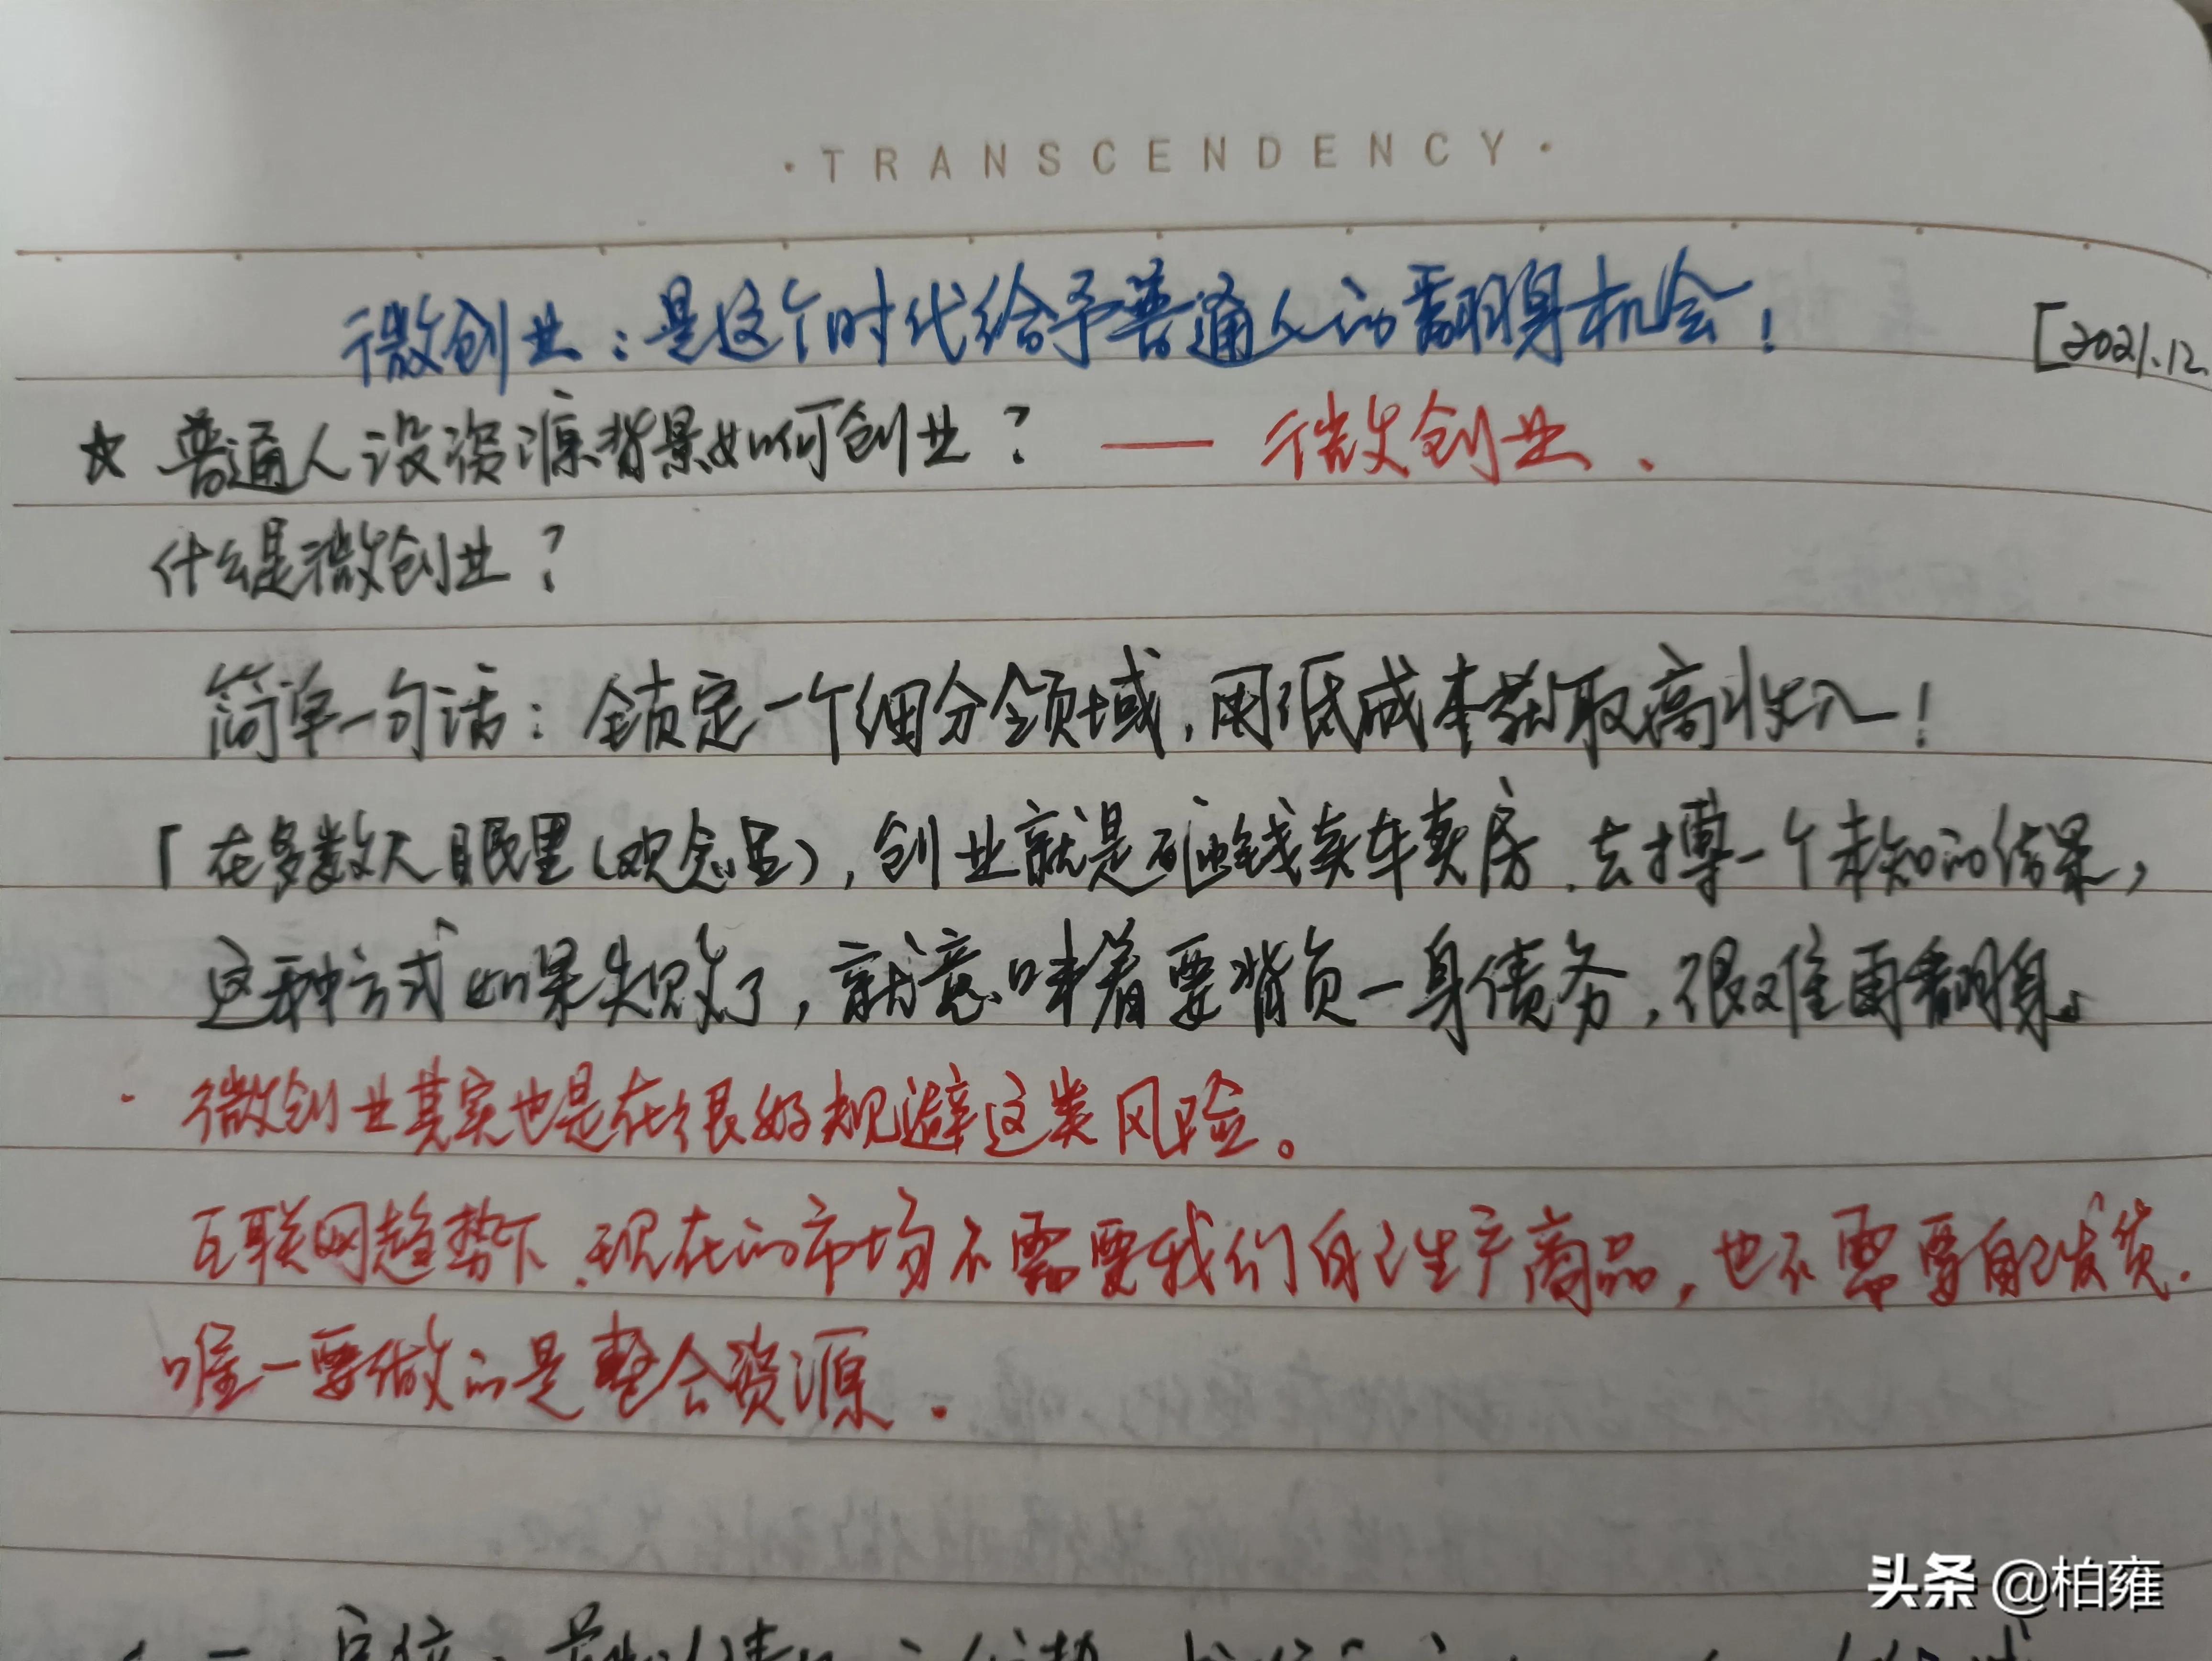 ·TRANSCENDENCY·
微创业：是这个时代给予普通人的翻身机会！
[2021.12.
☆ 普通人没资源背景如何创业？—— 微创业.
什么是微创业？
简单一句话：锁定一个细分领域，用低成本获取高收入！
「在多数人眼里（观念里），创业就是砸钱卖车卖房.去搏一个未知的结果，
这种方式如果失败了，就意味着要背负一身债务，很难再翻身」
· 微创业其实也是在很好规避这类风险。
互联网趋势下.现在的市场不需要我们自己生产商品，也不需要自己发货.
唯一要做的是整合资源.
头条 @柏雍